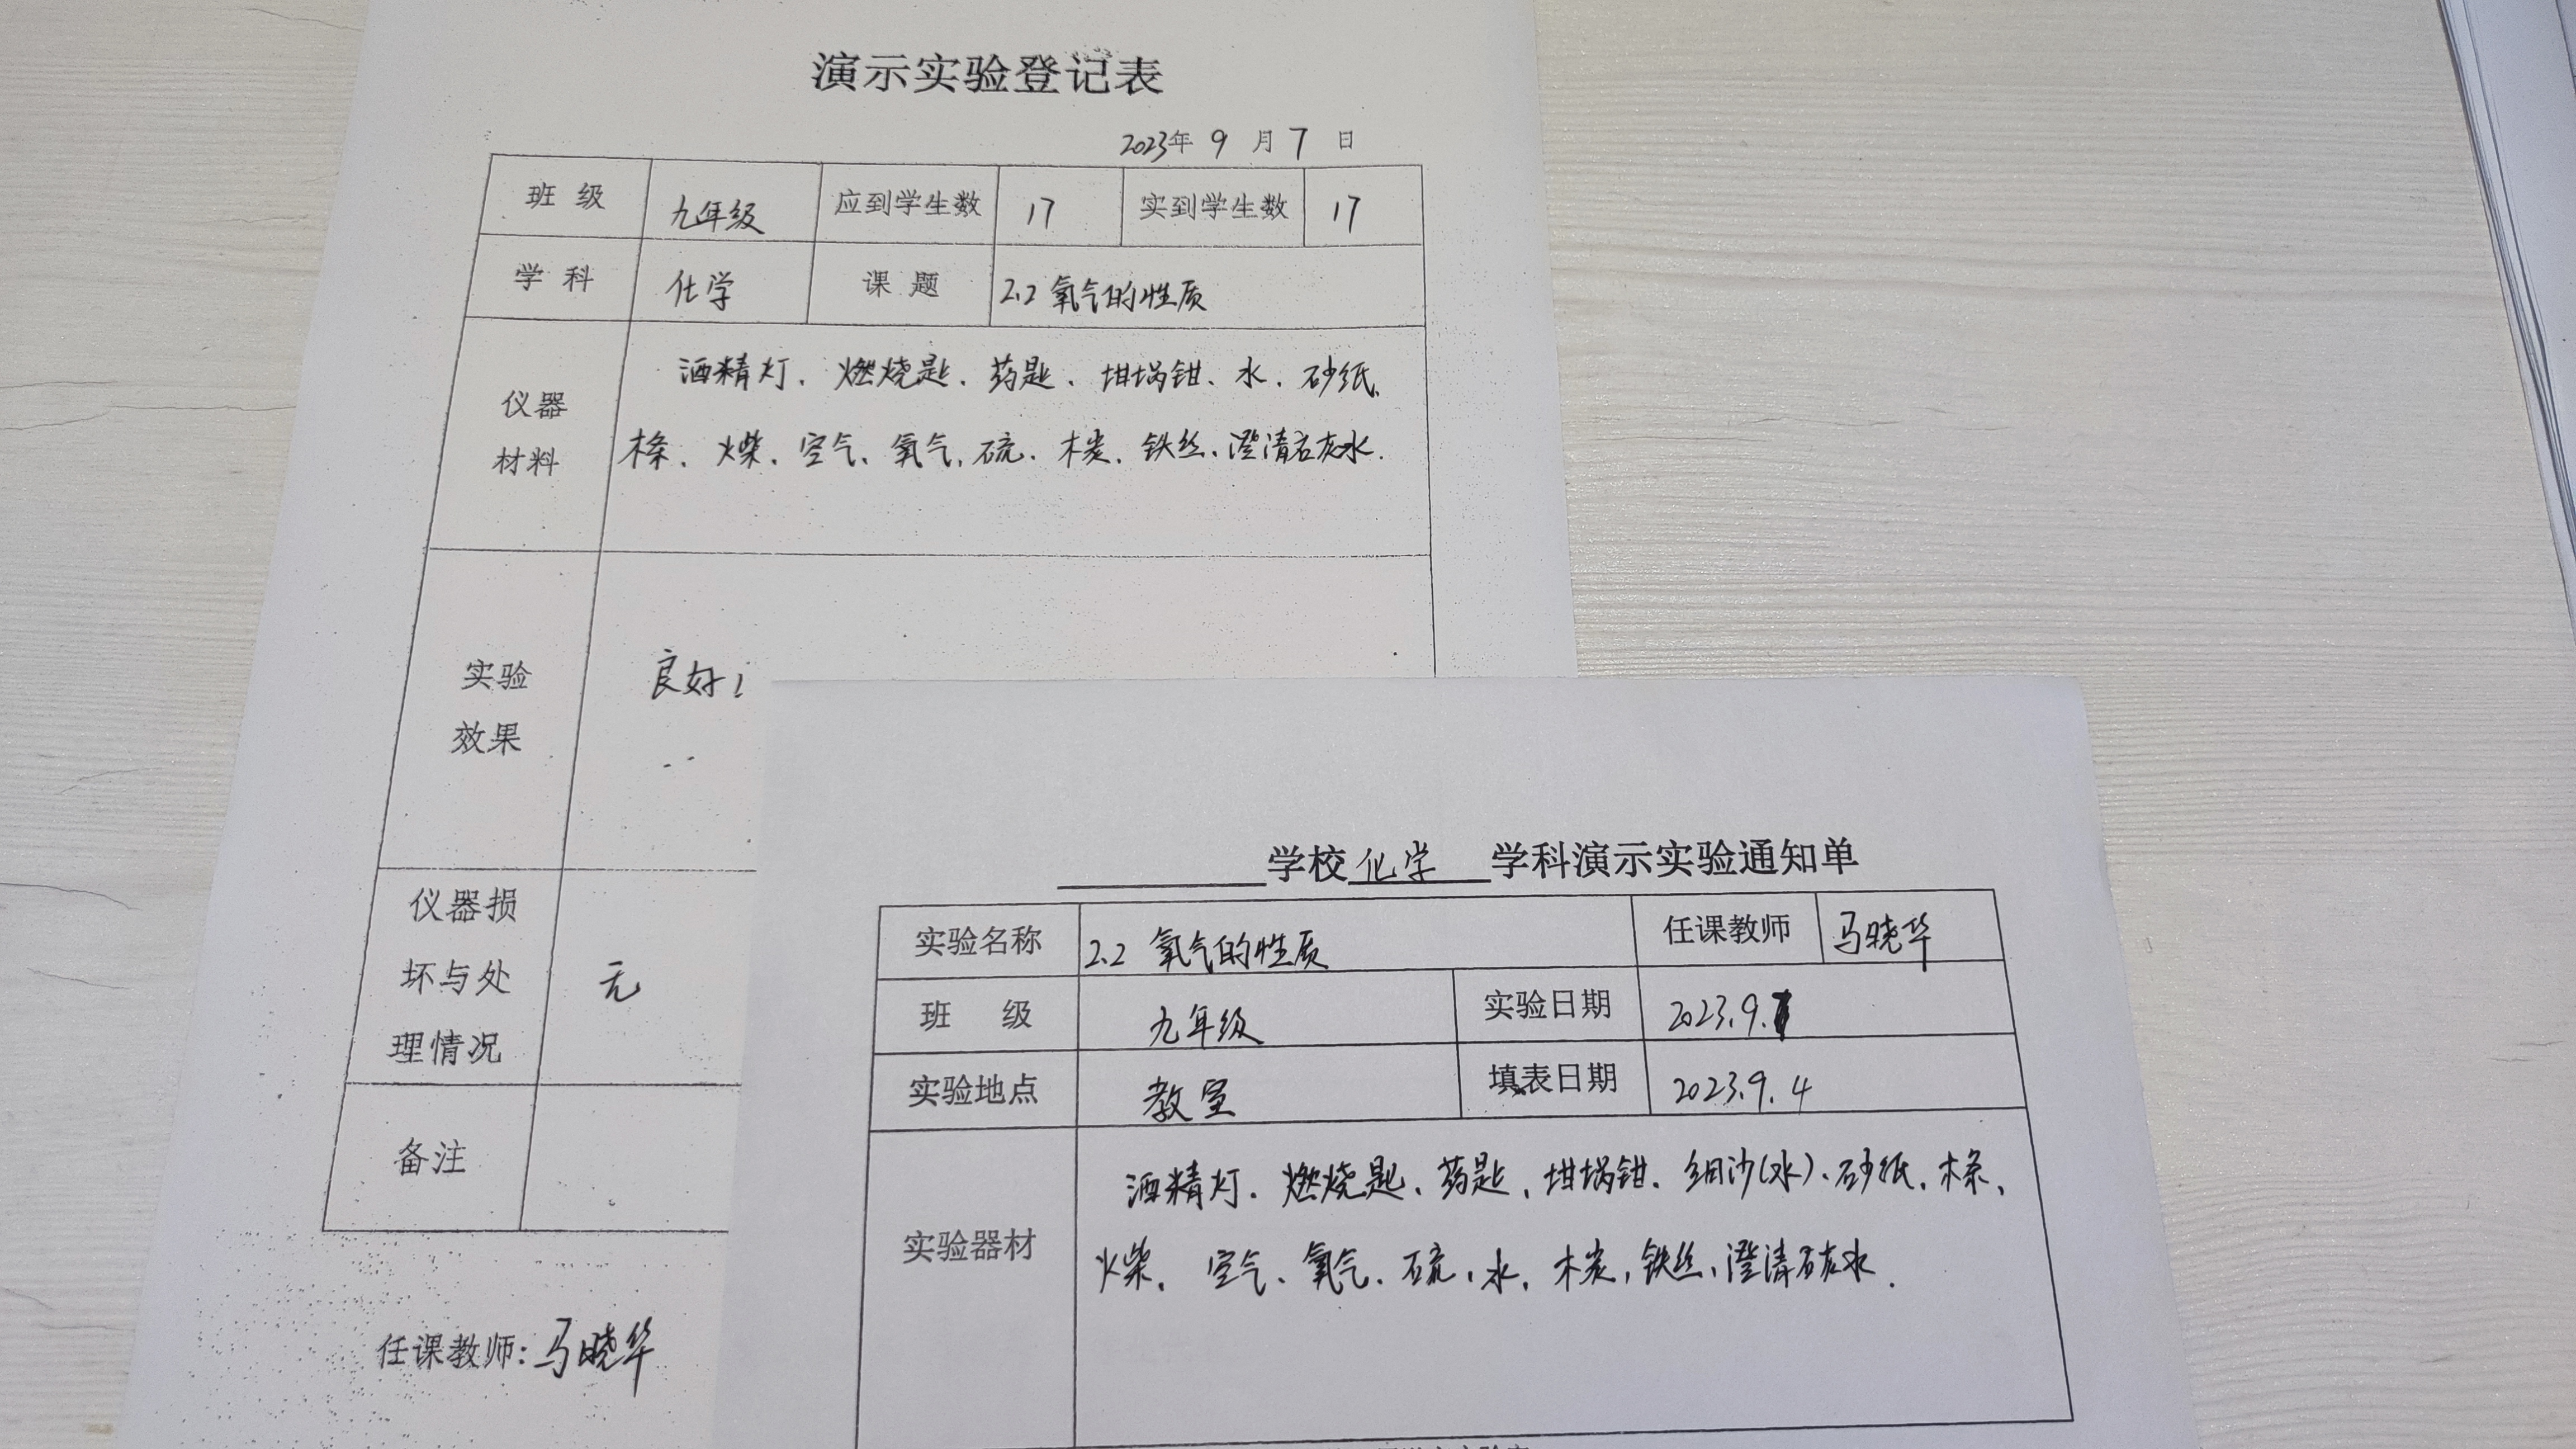 演示实验登记表
2023年 9 月 7 日
班 级 九年级 应到学生数 17 实到学生数 17
学 科 化学 课 题 2.2 氧气的性质
仪器
材料
酒精灯、燃烧匙、药匙、坩埚钳、水、砂纸、
木条、火柴、空气、氧气、硫、木炭、铁丝、澄清石灰水.
实验
效果
良好
仪器损
坏与处
理情况
无
备注
任课教师: 马晓华
学校 化学 学科演示实验通知单
实验名称 2.2 氧气的性质 任课教师 马晓华
班 级 九年级 实验日期 2023.9.7
实验地点 教室 填表日期 2023.9.4
实验器材
酒精灯、燃烧匙、药匙、坩埚钳、细沙(水)、砂纸、木条、
火柴、空气、氧气、硫、水、木炭、铁丝、澄清石灰水.